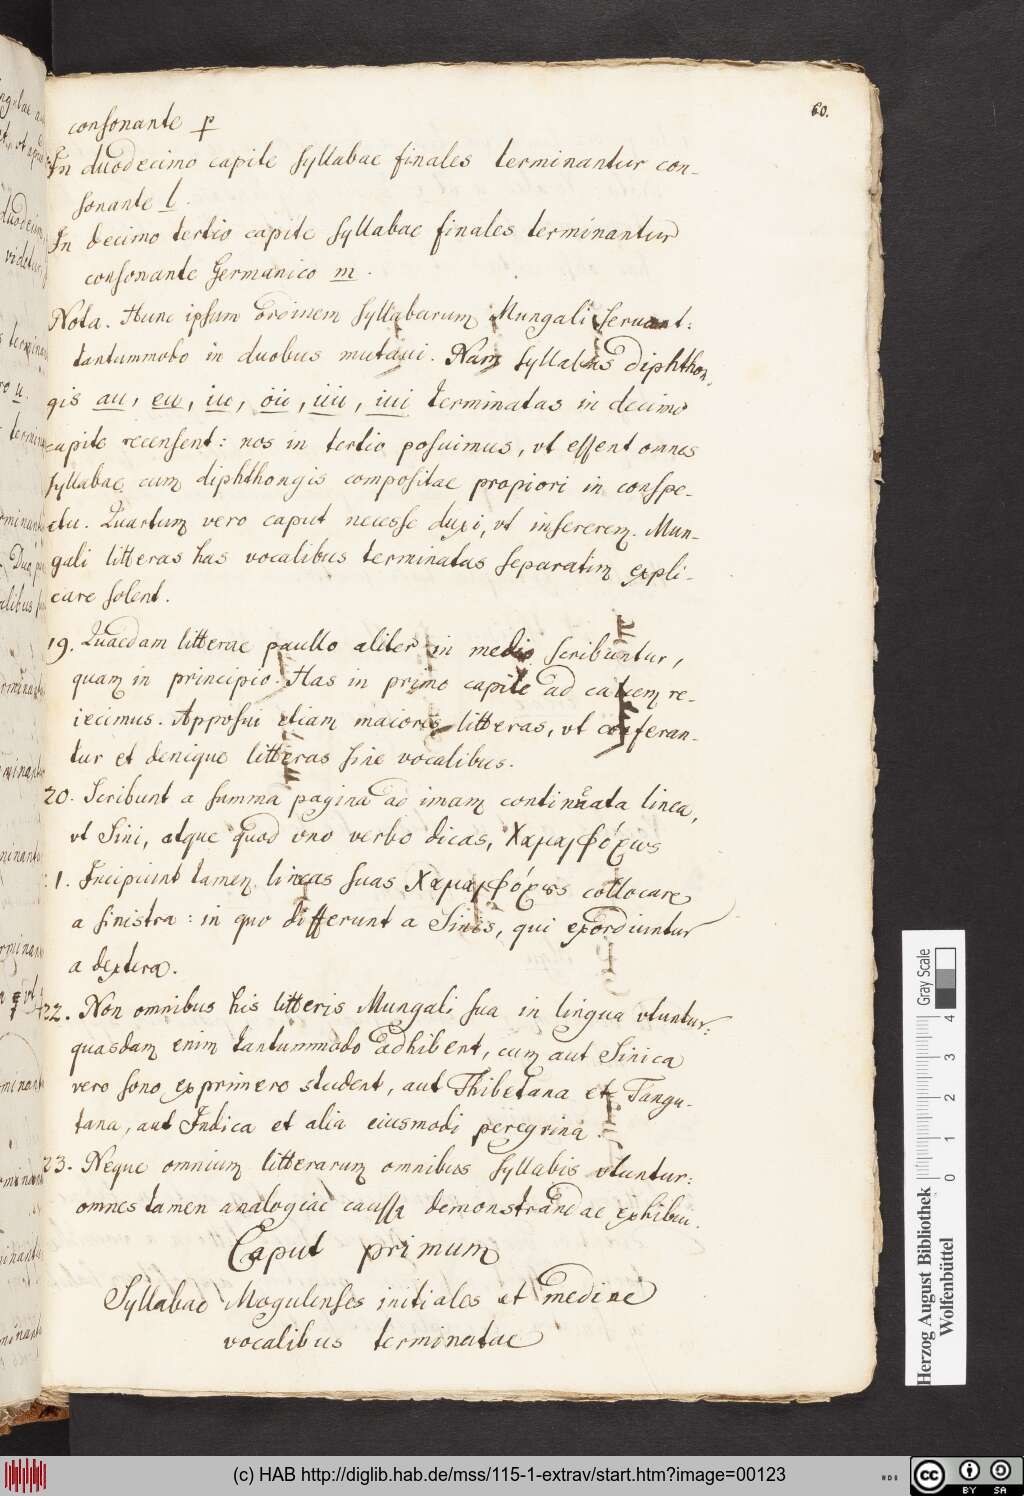 60.
consonante r
In duodecimo capite syllabae finales terminantur con-
sonante l.
In decimo tertio capite syllabae finales terminantur
consonante Germanico m.
Nota. Hunc ipsum ordinem syllabarum Mungali servant:
tantummodo in duobus mutaui. Nam syllabas diphthon,
gis au, eu, iu, oii, iiii, iiii terminatas in decimo
capite recensent: nos in tertio posuimus, vt essent omnes
syllabae cum diphthongis compositae propiori in conspe-
ctu. Quartum vero caput necesse duxi, vt insererem. Mun-
gali litteras has vocalibus terminatas separatim expli-
care solent.
19. Quaedam litterae paullo aliter in medio scribuntur,
quam in principio. Has in primo capite ad calcem re-
iecimus. Apposui etiam maiores litteras, vt conferan-
tur et denique litteras sine vocalibus.
20. Scribunt a summa pagina ad imam continuata linea,
vt Sini, atque quod vno verbo dicas, Χαμαιφόρως
1. Incipiunt tamen lineas suas Χαμαιφόρως collocare
a sinistra: in quo differunt a Sinis, qui exordiuntur
a dextera.
22. Non omnibus his litteris Mungali sua in lingua vtuntur:
quasdam enim tantummodo adhibent, cum aut Sinica
vero sono exprimere student, aut Thibetana et Tangu-
tana, aut Indica et alia eiusmodi peregrina.
23. Neque omnium litterarum omnibus syllabis vtuntur:
omnes tamen analogiae caussa demonstrandae exhibui.
Caput primum
Syllabae Mogulenses initiales et mediae
vocalibus terminatae
Herzog August Bibliothek
Wolfenbüttel
Gray Scale
0 1 2 3 4
(c) HAB http://diglib.hab.de/mss/115-1-extrav/start.htm?image=00123
cc BY SA